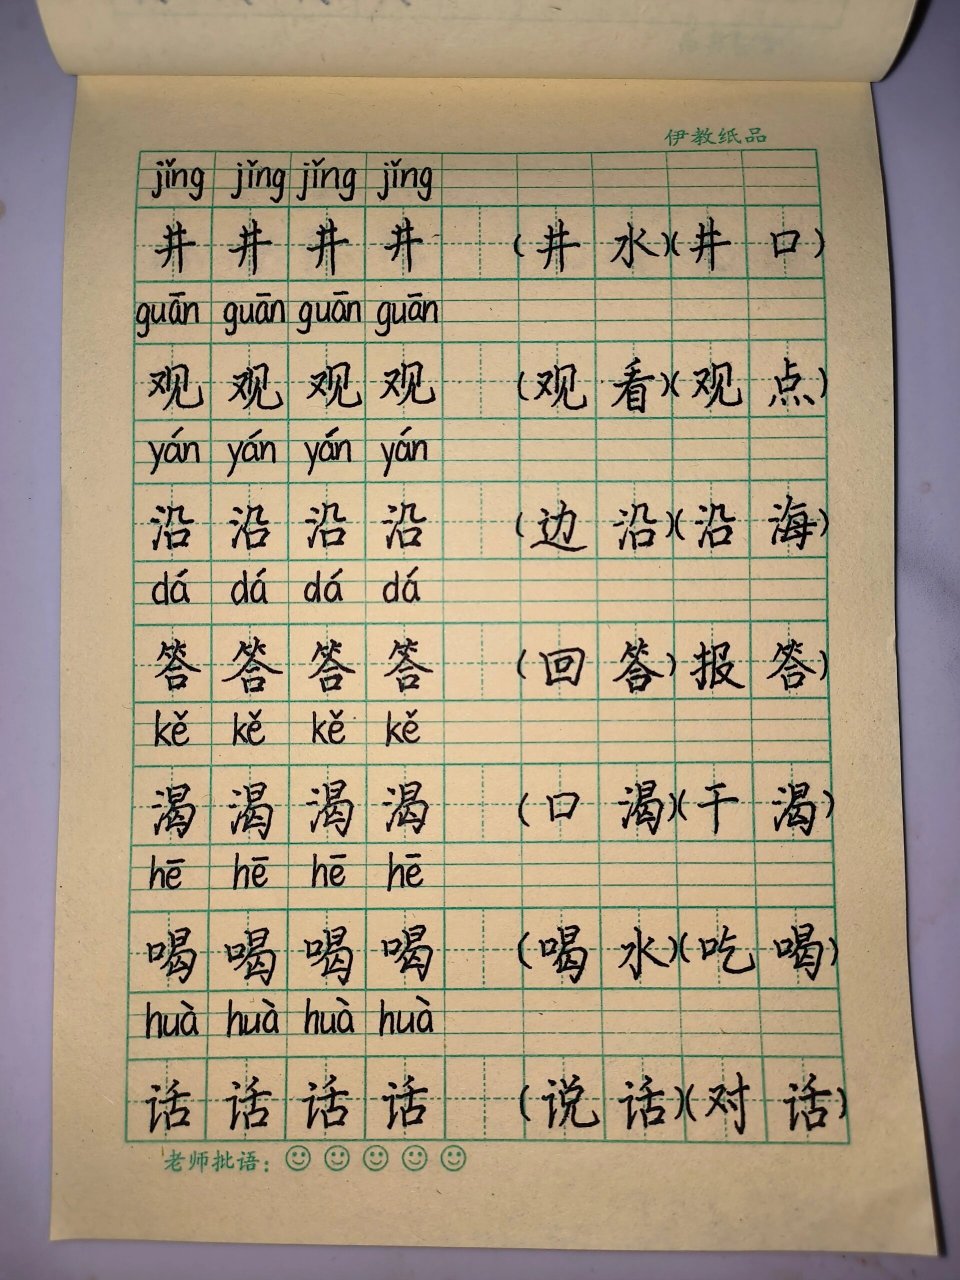 伊教纸品
jǐng jǐng jǐng jǐng
井 井 井 井 (井 水)(井 口)
guān guān guān guān
观 观 观 观 (观 看)(观 点)
yán yán yán yán
沿 沿 沿 沿 (边 沿)(沿 海)
dá dá dá dá
答 答 答 答 (回 答) 报 答)
kě kě kě kě
渴 渴 渴 渴 (口 渴)(干 渴)
hē hē hē hē
喝 喝 喝 喝 (喝 水)(吃 喝)
huà huà huà huà
话 话 话 话 (说 话)(对 话)
老师批语: